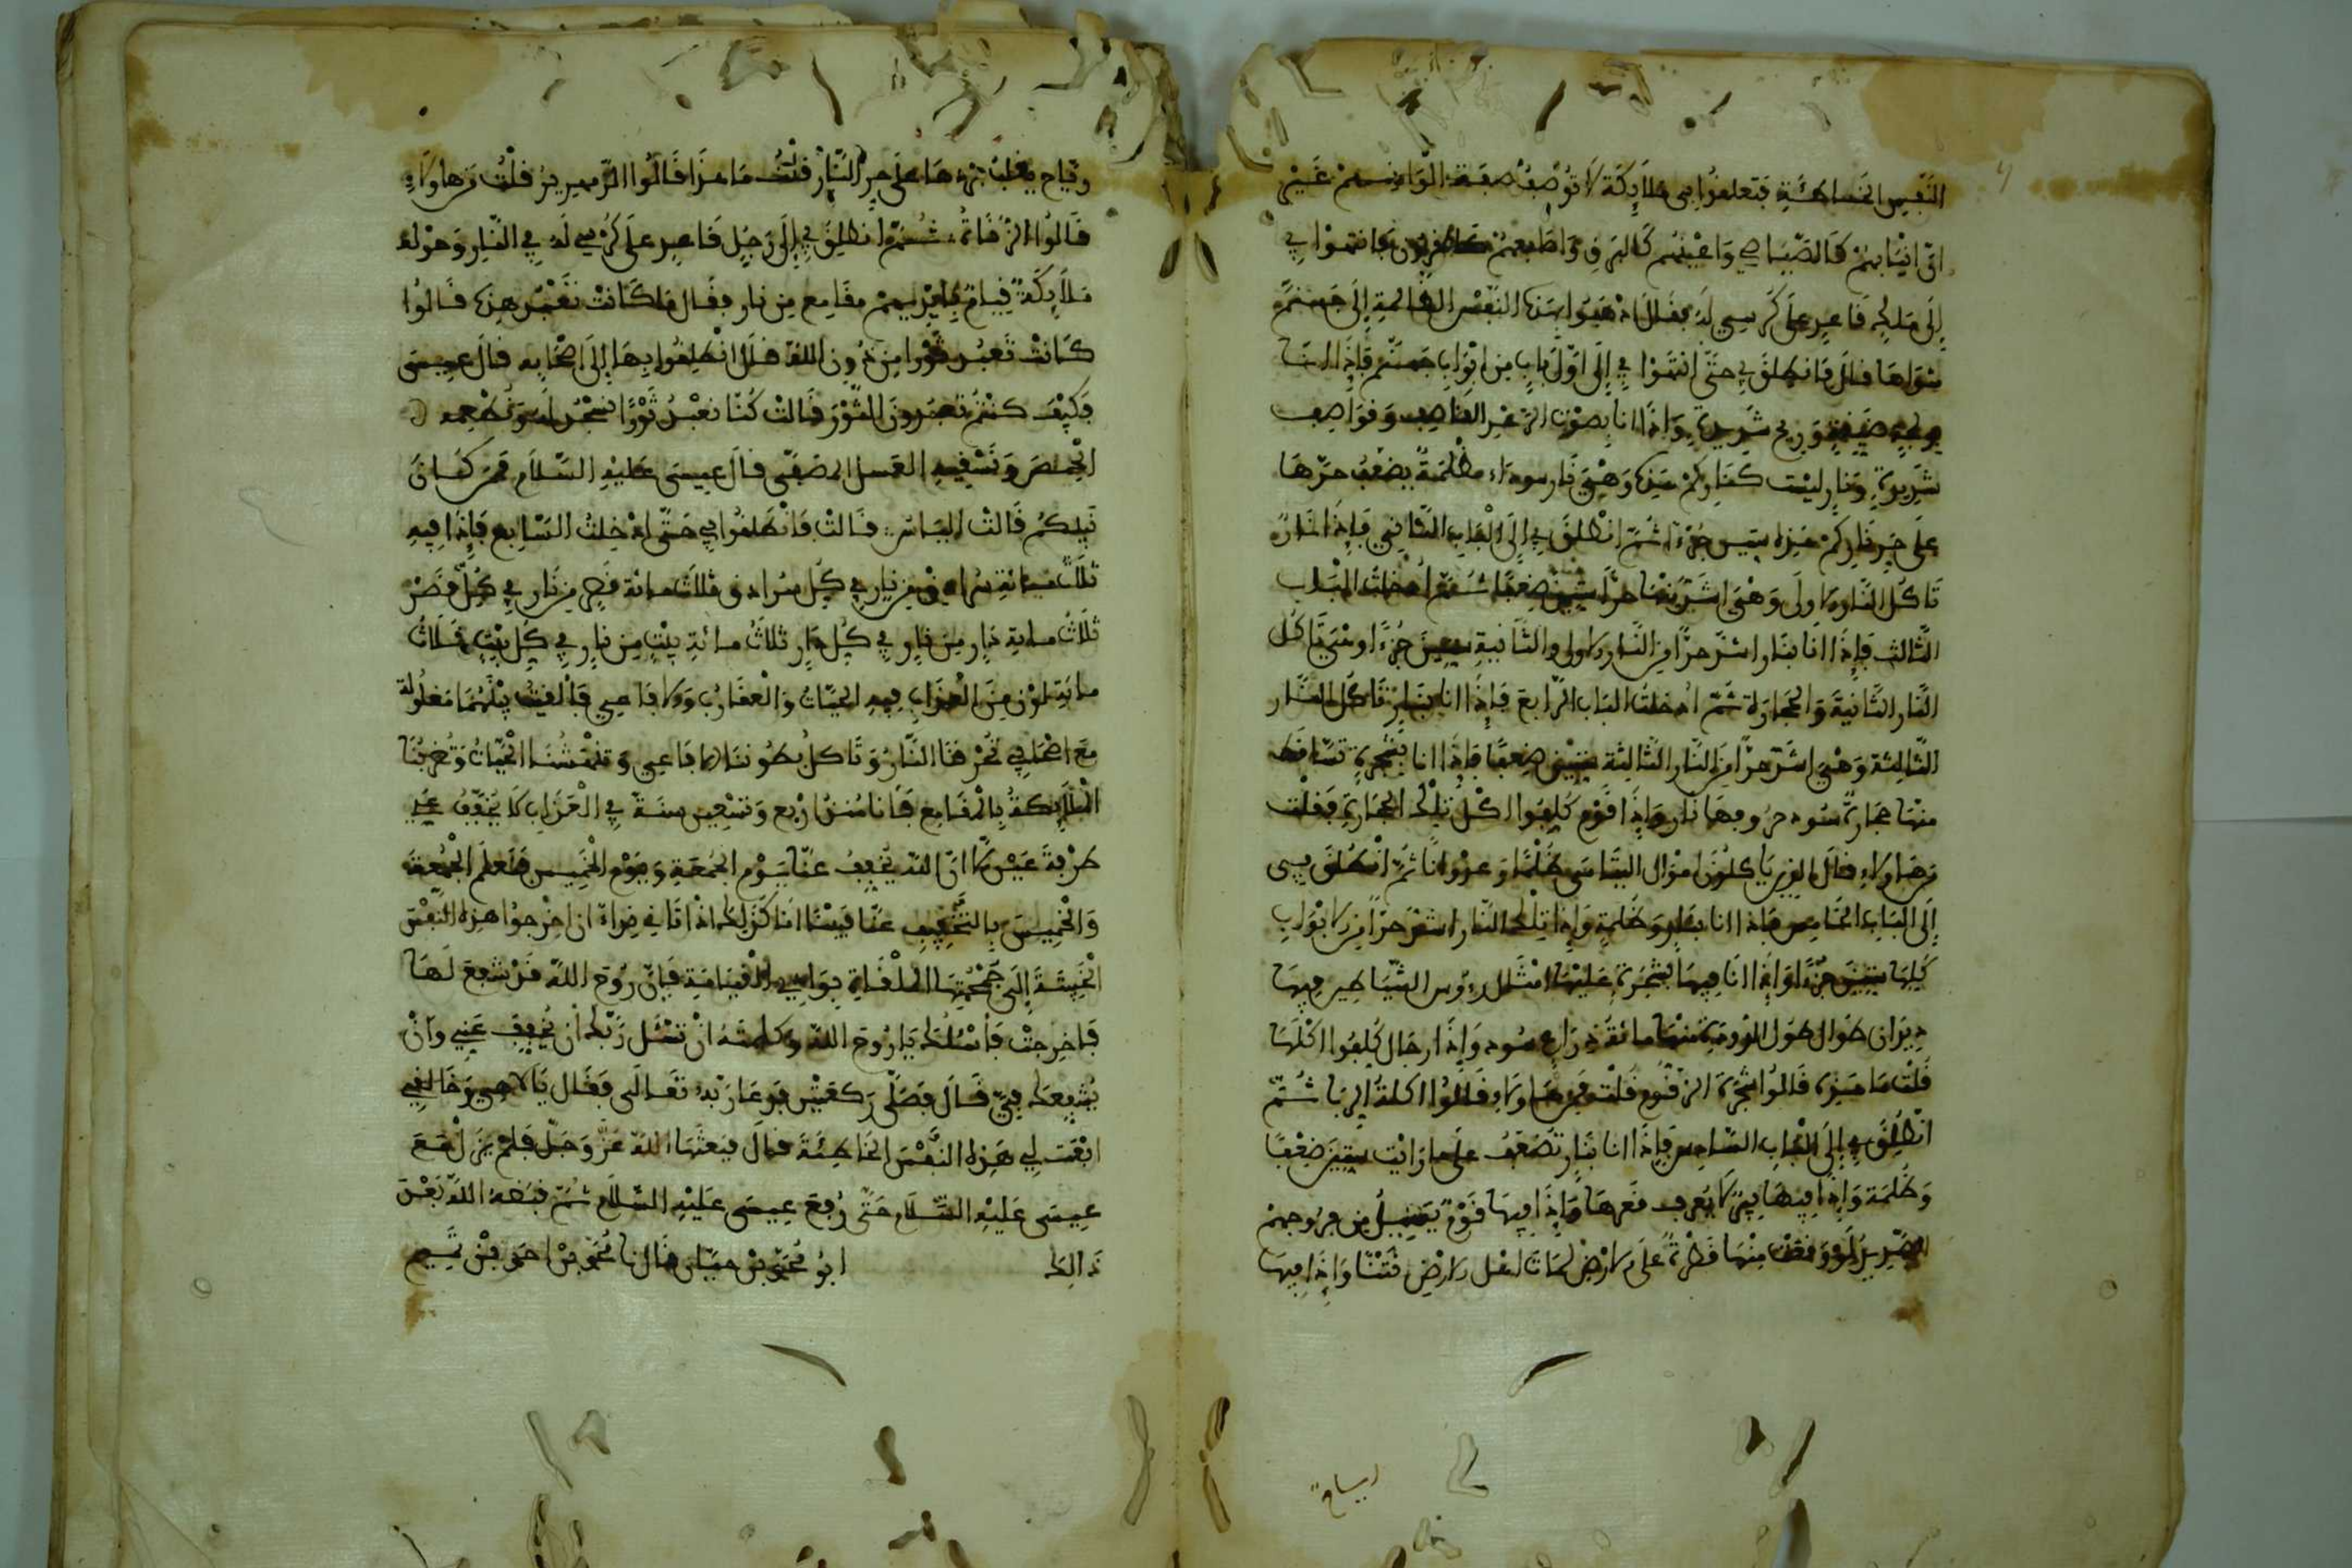 النفس الخاطئة فتعلقوا بي ملائكة لا توصف صفة ألوانهم غير
ان انيابهم كالصياصي واعينهم كالبرق واصابعهم كالقرون فانتهوا بي
إلى ملك قاعد على كرسي له فقال اذهبوا بهذه النفس الظالمة إلى جهنم
مثواها قال فانطلق بي حتى انتهوا بي إلى أول باب من ابواب جهنم فإذا
ضيقة وريح شديدة وإذا انا بصوت الرعد القاصف وقواصف
شديدة ونار ليست كناركم هذه وهي نار سوداء مظلمة يضعف حرها
على حر ناركم هذه ستين جزءا ثم انطلق بي إلى الباب الثاني فإذا نار
تاكل النار الاولى وهي اشد منها حرا ستين ضعفا ثم ادخلت الباب
الثالث فإذا انا بنار اشد حرا من النار الاولى والثانية ستين جزءا وهي تاكل
النار الثانية والحجارة ثم ادخلت الباب الرابع فإذا انا بنار تاكل النار
الثالثة وهي اشد حرا من النار الثالثة ستين ضعفا فإذا انا بشجرة تساقط
منها حجارة سود حروفها نار وإذا قوم كلفوا اكل تلك الحجارة فقلت
من هاولاء قال الذين ياكلون اموال اليتامى ظلما وعدوانا ثم انطلق بي
إلى الباب الخامس فإذا انا بنار وظلمة وإذا تلك النار اشد حرا من الابواب
كلها ستين جزءا وإذا انا فيها بشجرة عليها امثال رءوس الشياطين فيها
ديدان طوال طول الدودة منها مائة ذراع سود وإذا رجال كلفوا اكلها
قلت ما هذه قالوا شجرة الزقوم قلت من هاولاء قالوا اكلة الربا ثم
انطلق بي إلى الباب السادس فإذا انا بنار تضعف على ما رايت ستين ضعفا
وظلمة وإذا فيها بئر لا يعرف قعرها وإذا فيها قوم يسيل من فروجهم
الصديد لو وقعت منها قطرة على الارض لمات اهل الارض نتنا وإذا فيها
رياح
رياح يغلب بردها على حر النار فقلت ما هذا قالوا الزمهرير قلت من هاولاء
قالوا الزناة ثم انطلق بي إلى رجل قاعد على كرسي له في النار وحوله
ملائكة قيام بايديهم مقامع من نار فقال ما كانت تعبد هذه قالوا
كانت تعبد ثورا من دون الله قال انطلقوا بها إلى اصحابه قال عيسى
فكيف كنتم تعبدون الثور قالت كنا نعبد ثورا نسجد له ونطعمه
الحمص ونسقيه العسل المصفى قال عيسى عليه السلام فمن كان
نبيكم قالت الياس قالت فانطلقوا بي حتى ادخلت السابع فإذا فيه
ثلاث مائة سرادق من نار في كل سرادق ثلاث مائة قصر من نار في كل قصر
ثلاث مائة دار من نار في كل دار ثلاث مائة بيت من نار في كل بيت ثلاث
مائة لون من العذاب فيه الحيات والعقارب والافاعي فالقيت بينهما مغلولة
مع اصحابي تحرقنا النار وتاكل بطوننا الافاعي وتنهشنا الحيات وتضربنا
الملائكة بالمقامع فانا منذ اربع وتسعين سنة في العذاب لا يخفف عني
طرفة عين الا ان الله يخفف عنا يوم الجمعة ويوم الخميس فنعلم الجمعة
والخميس بالتخفيف عنا فبينا انا كذلك اذ اتاني نداء ان اخرجوا هذه النفس
الخبيثة إلى جمجمتها الملقاة بوادي القيامة فإن روح الله قد شفع لها
فاخرجت فاسئلك يا روح الله وكلمته ان تسئل ربك أن يخفف عني وأن
يشفعك في قال فصلى ركعتين فدعا ربه تعالى فقال يا الاهي وخالقي
ابعث لي هذه النفس الخاطئة قال فبعثها الله عز وجل فلم يزل مع
عيسى عليه السلام حتى رفع عيسى عليه السلام ثم قبضه الله بعد
ذالك ابو محمد بن قال نا محمد بن احمد بن تميم